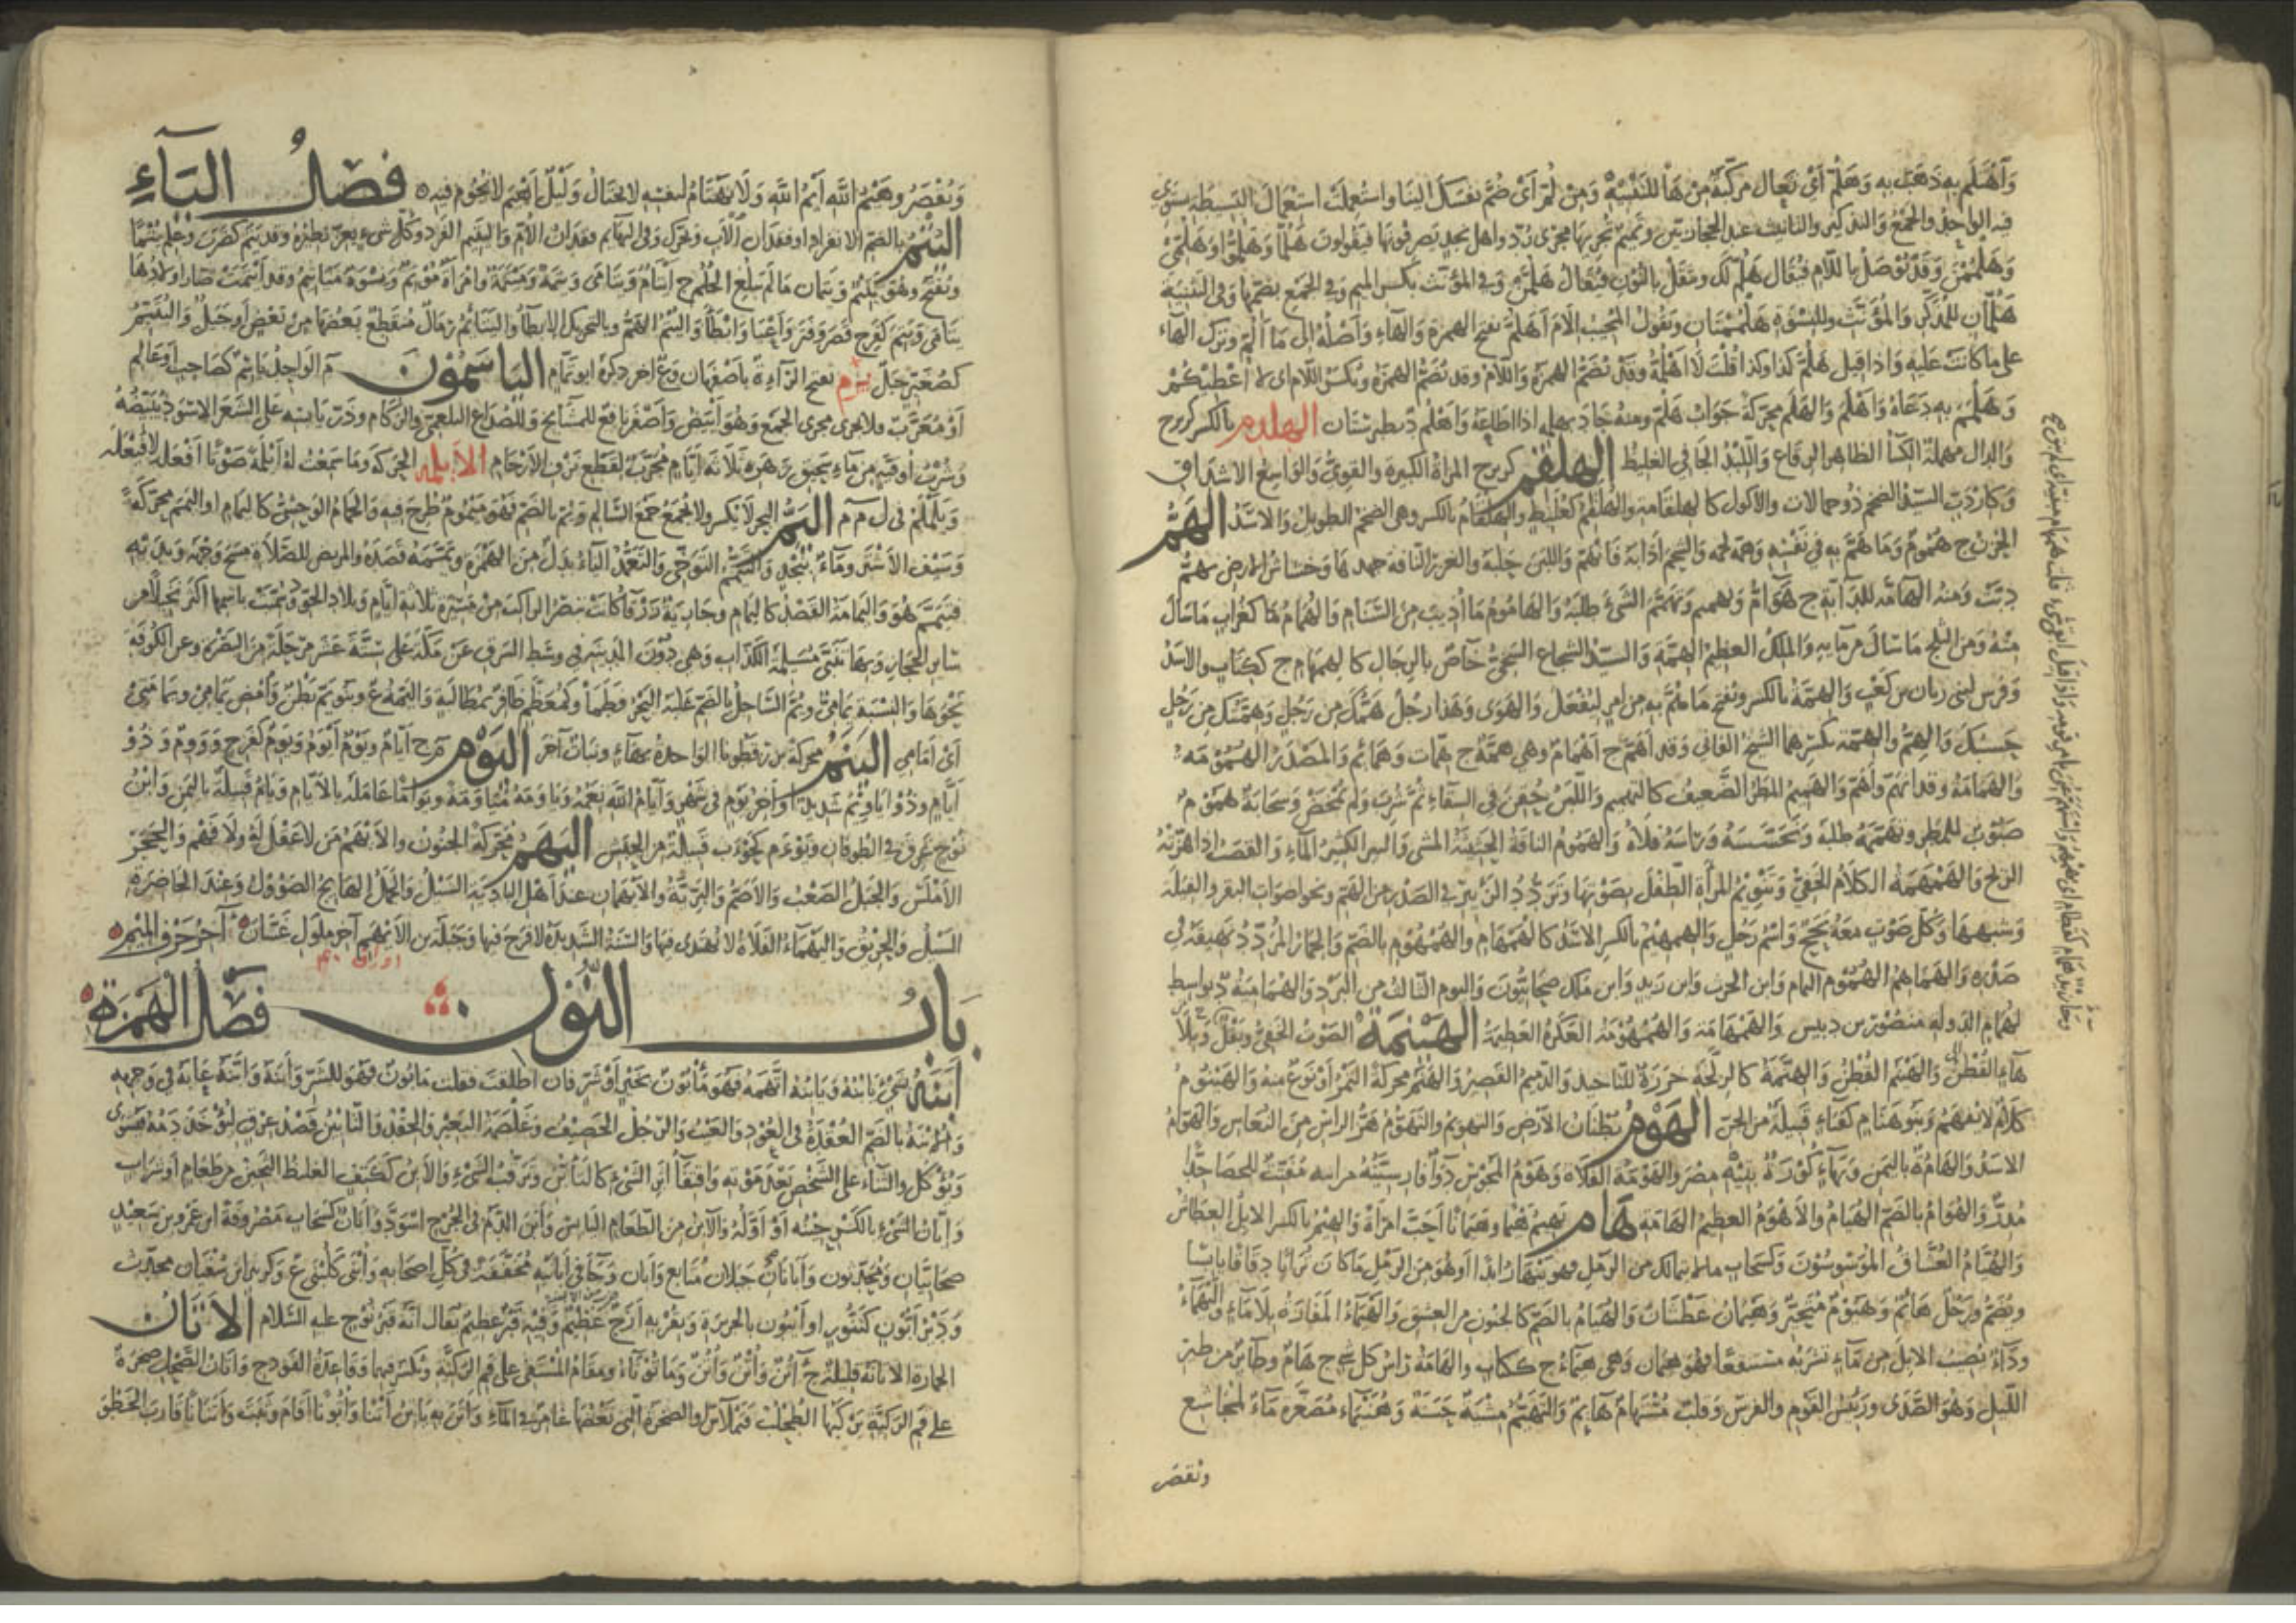 وَاَهْلَمَ به ذهب به وَهَلُمَّ اى تعال مركبة من هَا للتنبيه ومن لُمَّ اى ضُمَّ نفسك الينا واستعملت استعمال البسيطة يستوى
فيه الواحد والجمع والتذكير والتانيث عند الحجازيين وتميم تجريها مجرى رُدَّ واهل نجد يصرفونها فيقولون هلُمّا وهلُمّوا وهلُمّى
وهلمُمن وقد توصل باللام فيقال هلم لك وتثقل بالنون فيقال هلمّنّ وفى المؤنث بكسر الميم وفى الجمع بضمها وفى التثنية
هلمّانّ للمذكر والمؤنث وللنسوة هلممنانّ ويقول المجيب الام اهلم بفتح الهمزة والهاء واصله الى ما الم وترك الهاء
على ما كانت عليه واذا قيل هلم كذا وكذا قلت لا اهلمه وقد تضم الهمزة واللام وقد تضم الهمزة وتكسر اللام اى لا اعطيكم
وهلمم به دعاه واهلم والهلم محركة جواب هلم ومنه جاد بهلمه اذا اطاعه واهلم د بطبرستان الهلدم بالكسر كزبرج
والدال مهملة الكسأ الظاهر الرقاع واللبد الجافى الغليظ الهلقم كزبرج المرأة الكبيرة والقوىّ والواسع الاشداق
وكاردب السيد الضخم ذو حمالات والاكول كالهلقامة والهلقم كعلبط والهلقام بالكسر وهى الضخم الطويل والاسد الهَمّ
الحزن ج هموم وما هَمّ به فى نفسه وهمه لحمه والشحم اذابه فانهم واللبن حلبه والغزر الناقة جهدها وخشاش الارض تهم
دبت ومنه الهامة للدابة ج هوامّ وتهميم وتهمم الشئ طلبه والهاموم ما اذيب من السنام والهُمام كغراب ما سال
منه ومن الثلج ما سال من مايه والملك العظيم الهمة والسيد الشجاع السخىّ خاص بالرجال كالهمهام ج ككتاب والاسد
وفرس لبنى زبان بن كعب والهمة بالكسر وتفتح ما هم به من امر ليفعل والهوى وهذا رجل همّك من رجل وهمتك من رجل
حسبك والهِمّ والهمة بكسرهما الشيخ الفانى وقد اهمّ ج اهمام وهى همة ج همات وهمائم والمصدر الهمومة
والهمامة وقد انهم واهم والهميم المطر الضعيف كالتهميم واللبن حقن فى السقاء ثم شرب ولم يمخض وسحابة هموم
صبوب للمطر وتهممه طلبه وتحسسه وراسه فلاه والهموم الناقة الحسنة المشى والبئر الكثيرة الماء والقصب اذا هزته
الريح والهمهمة الكلام الخفىّ وتنويم المرأة الطفل بصوتها وتردد الزئير فى الصدر من الهم ونحو اصوات البقر والفيلة
وشبهها وكل صوت معه بحح واسم رجل والهمهيم بالكسر الاسد كالهمهام والهمهوم بالضم والحمار المردد نهيقه فى
صدره والهماهم الهموم والهمام وابن الحرث وابن زيد وابن مالك صحابيون واليوم الثالث من البرد والهمامية د بواسط
لهمام الدولة منصور بن دبيس والهمهامة والهمهومة العكرة العظيمة الهينمة الصوت الخفى وبقل وبلا
هاء القطن والهنم القطن والهنّمة كالرنحة خرزة للتاخيذ والدميم القصير والهنم محركة التمر او نوع منه والهينوم
كلام لا يفهم وبنو هنام كقناء قبيلة من الجن الهَوْم بطنان الارض والتهويم والتهوم هز الراس من النعاس والهوام
الاسد والهامة باليمن وبهاء كورة بتيه مصر والهومة الفلاة وهوم المجوس دواء فارسيته مرانيه مفتت للحصا جدا
مدر والهوام بالضم الهيام والاهوم العظيم الهامة هام يهيم هيما وهيمانا احب امرأة والهيم بالكسر الابل العطاش
والهيام العشاق الموسوسون وكسحاب ما لا يتمالك من الرمل فهو ينهار ابدا او هو من الرمل ما كان ترابا دقاقا يابسا
ويضم ورجل هائم وهيوم متحير وهيمان عطشان والهيام بالضم كالجنون من العشق والهيماء المفازة بلا ماء والتيهماء
وداء يصيب الابل من ماء تشربه مستنقعا فهو هيمان وهى هيماء ج ككتاب والهامة راس كل شئ ج هام وطائر من طير
الليل وهو الصدى ورئيس القوم والفرس وقلب مستهام هايم والتهيّم مشية حسنة وهنيماء مصغرة ماء لمجاشع
وتقصر
وتقصر وهيم الله ايم الله ولا يهتام لنفسه لا يحتال وليل اهيم لا نجوم فيه فصل الياء
اليتم بالضم الانفراد او فقدان الاب ويحرك وفى البهائم فقدان الام واليتيم الفرد وكل شئ يعز نظيره وقد يتم كضرب وعلم يتما
ويفتح وهو يتيم ويتمان ما لم يبلغ الحلم ج ايتام ويتامى ويتمة وميتمة وامرأة موتم ونسوة مياتيم وقد ايتمت صار اولادها
يتامى ويتم كفرح قصر وفتر واعيا وابطأ واليتم الهم وبالتحريك الابطاء واليتائم رمال منقطع بعضها من بعض او جبل واليتيم
كصغير جبل يزم بفتح الزاء ة باصفهان وع اخر ذكره ابو تمام الياسمون م الواحد ياسم كصاحب او عالم
او معرّب ولا يجرى مجرى الجمع وهو ابيض واصفر نافع للمشايخ وللصداع البلغمى والزكام وذر يابسه على الشعر الاسود يبيضه
وشرب اوقية من ماء سحيق زهره ثلاثة ايام مجرب لقطع نزف الارحام الايلمه الحركة وما سمعت له ايلمة صوتا افعلة لا فيعلة
ويلملم فى ل م م اليمّ البحر لا يكسر ولا يجمع جمع السالم ويم بالضم فهو ميموم طرح فيه والحمام الوحشى كاليمام او اليمم محركة
وسيف الاشتر وماء بنجد والتيمم التوخى والتعمد الياء بدل من الهمزة ويممه قصده والمريض للصلاة مسح وجهه ويديه
فتيمم هو واليمامة القصد كاليمام وجارية زرقا كانت تبصر الراكب من مسيرة ثلاثة ايام وبلاد الجو وسميت باسمها اكثر نخيلا من
ساير الحجاز وبها تنبى مسيلمة الكذاب وهى دون المدينة فى وسط الشرق عن مكة على ستة عشر مرحلة من البصرة وعن الكوفة
نحوها والنسبة يمامى ويم الساحل بالضم غلبه البحر وطما وكمعظم ظافر بمطالبه واليمة ع وبنو يم بطن وامض يمامى ويمامتى
اى امامى الينم محركة بزرقطونا الواحدة بهاء ونبات آخر اليوم م ج ايام ويوم ايوم ويوم كفرح ووووم وذو
ايام وذو اياويم شديد او آخر يوم فى شهر وايام الله نعمه وياومه مياومة ويواما عامله بالايام ويام قبيلة باليمن وابن
نوح غرق فى الطوفان ويوءم كجوذب قبيلة من الحبش اليهم محركة الجنون والايهم من لا عقل له ولا فهم والحجر
الاملس والجبل الصعب والاصم والبرية والايهمان عند اهل البادية السيل والجمل الهايج الصؤول وعند الحاضرة
السيل والحريق واليهماء الفلاة لا يهتدى فيها والسنة الشديدة لا فرج فيها وجبلة بن الايهم آخر ملوك غسان آخر حرف الميم
باب النون فصل الهمزة
ابنه بشئ يابنه ويابنه اتهمه فهو مابون بخير او شر فان اطلقت فقلت مابون فهو للشر وابنه وابّنه عابه فى وجهه
والابنة بالضم العقدة فى العود والعيب والرجل الخصيف وغلصمة البعير والحقد والتابين فصد عرق ليؤخذ دمه فيشوى
ويؤكل والثناء على الشخص بعد موته واقتفاء اثر الشئ كالتابن وترقب الشئ والابن ككتف الغليظ الثخين من طعام او شراب
وابان الشئ بالكسر حينه او اوله والآبن من الطعام اليابس وابن الدم فى الجرح اسود وابان كسحاب مصروفة ابن عمرو بن سعيد
صحابيان ومحدثون وابانان جبلان متالع وابان وجاء فى ابانته مخففة فى كل اصحابه وابنى كلبنى ع وكزبير ابن سفيان محدث
ودير ابون كتنور او ابيون بالجزيرة وبقربه ازج عظيم وفيه قبر عظيم يقال انه قبر نوح عليه السلام الاتان
الحمارة الاتانة قليلة ج آتن واتن واتن وماتوناء ومقام المستقى على فم الركية وتكسر فيهما وقاعدة الفودج واتان الضحل صخرة
على فم الركية يركبها الطحلب فتملاسّ او الصخرة التى بعضها غامر فى الماء واتن به ياتن اتنا واتونا اقام وثبت واتنانا قارب الخطو